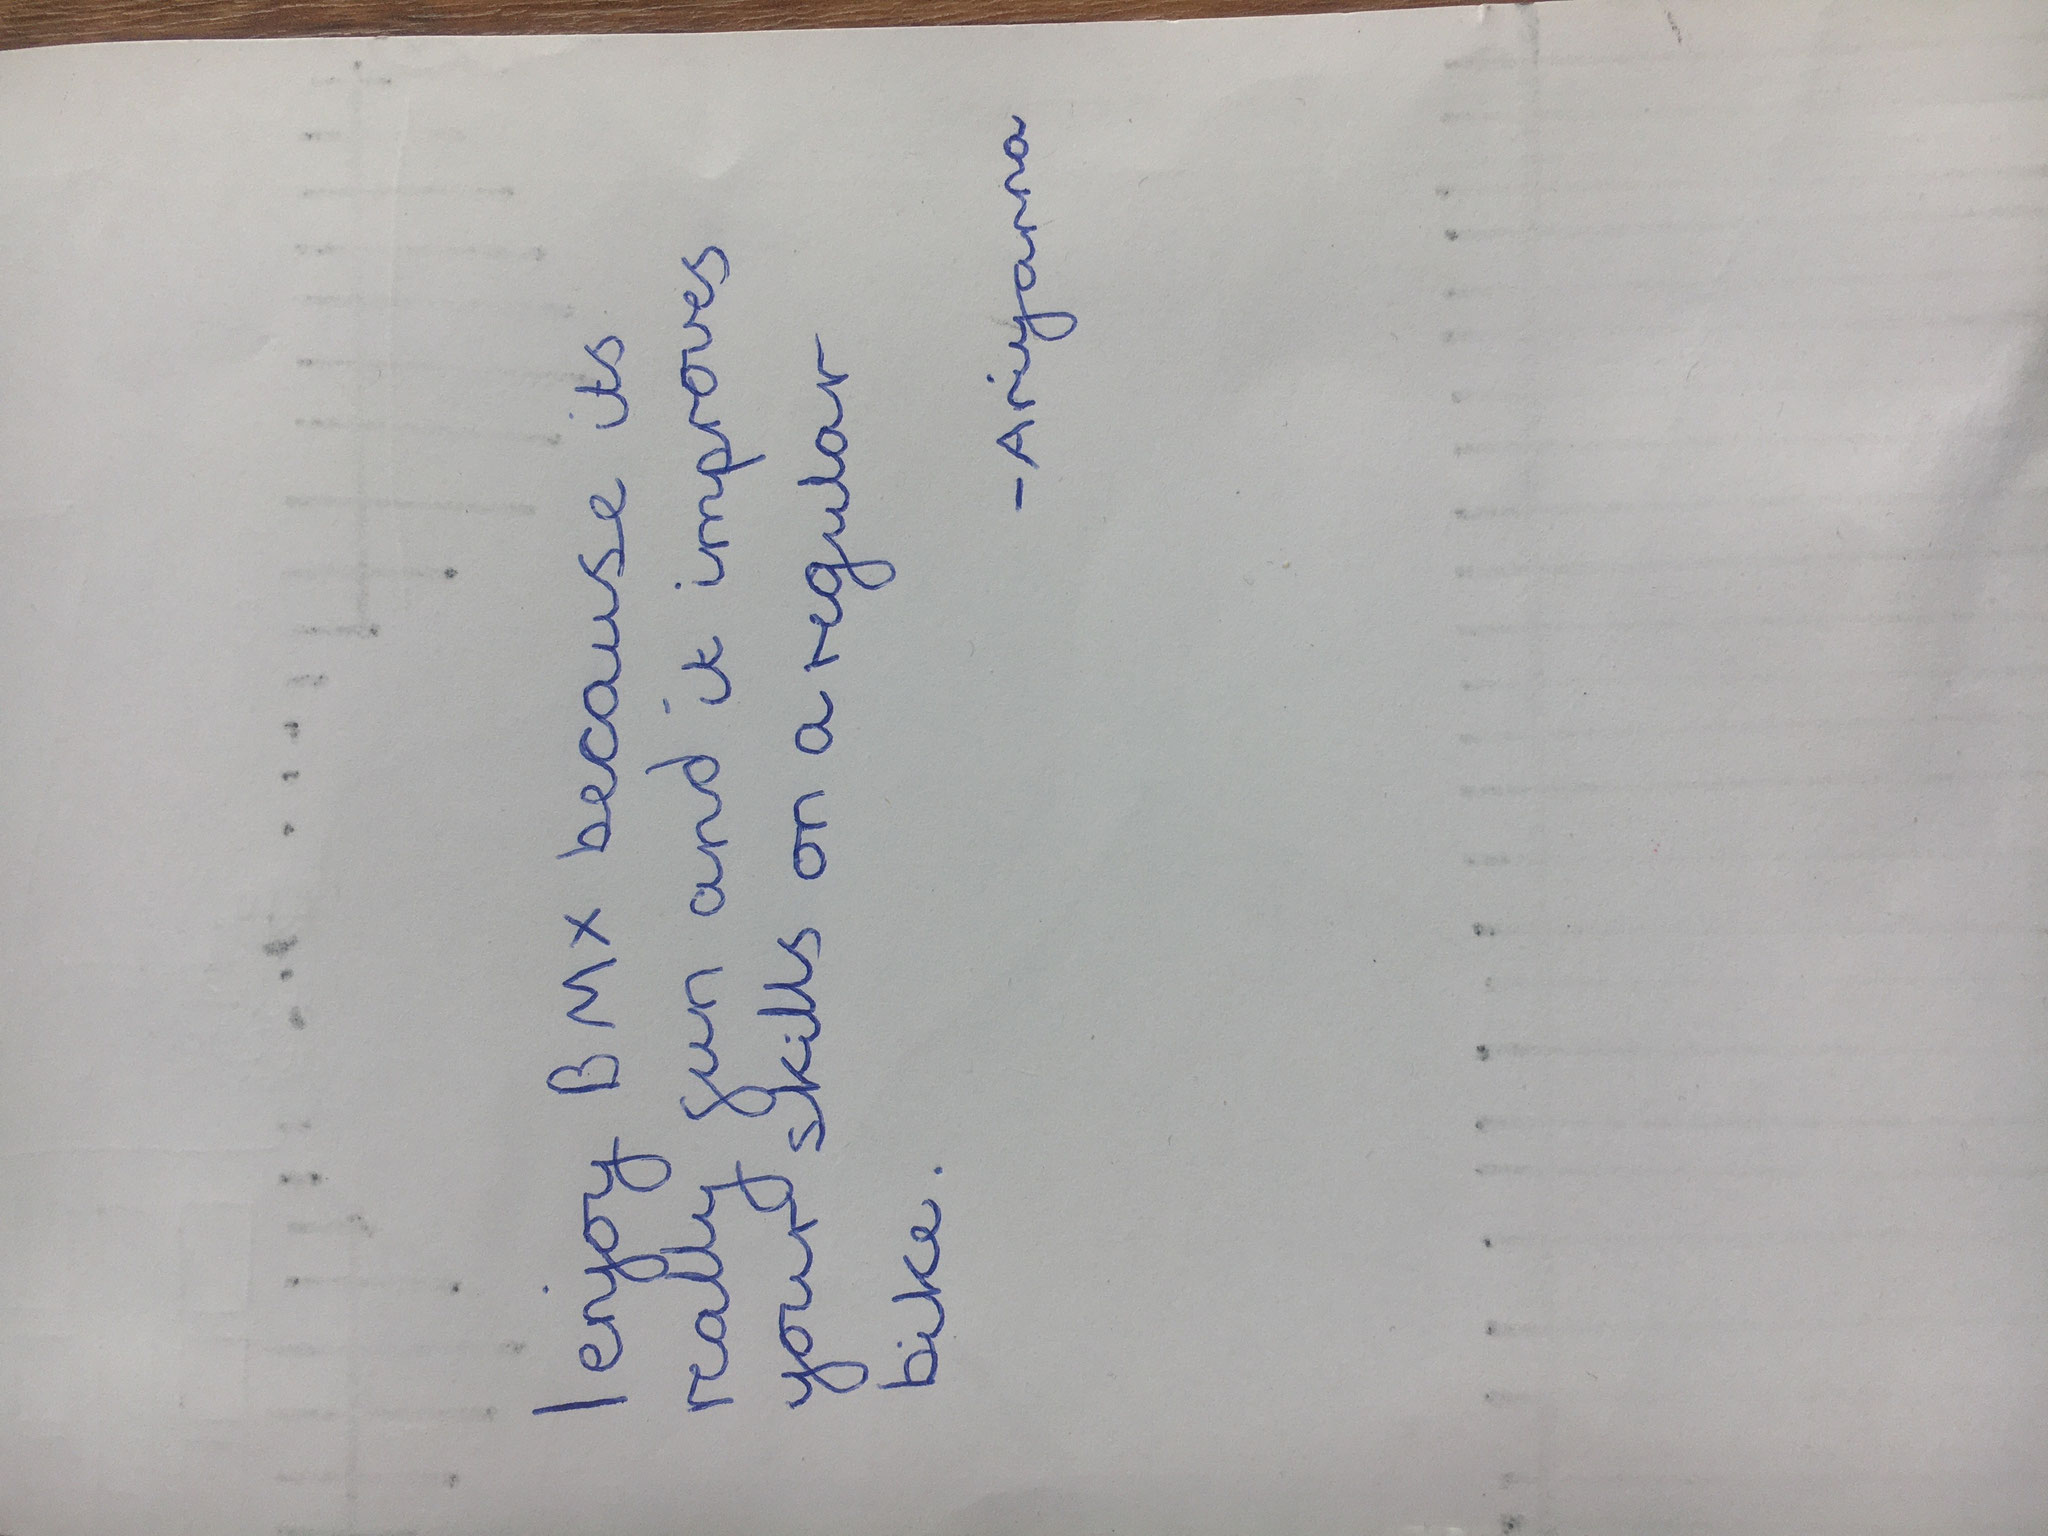 I enjoy BMX because its
really fun and it improves
your skills on a regular
bike.
-Ariyanna